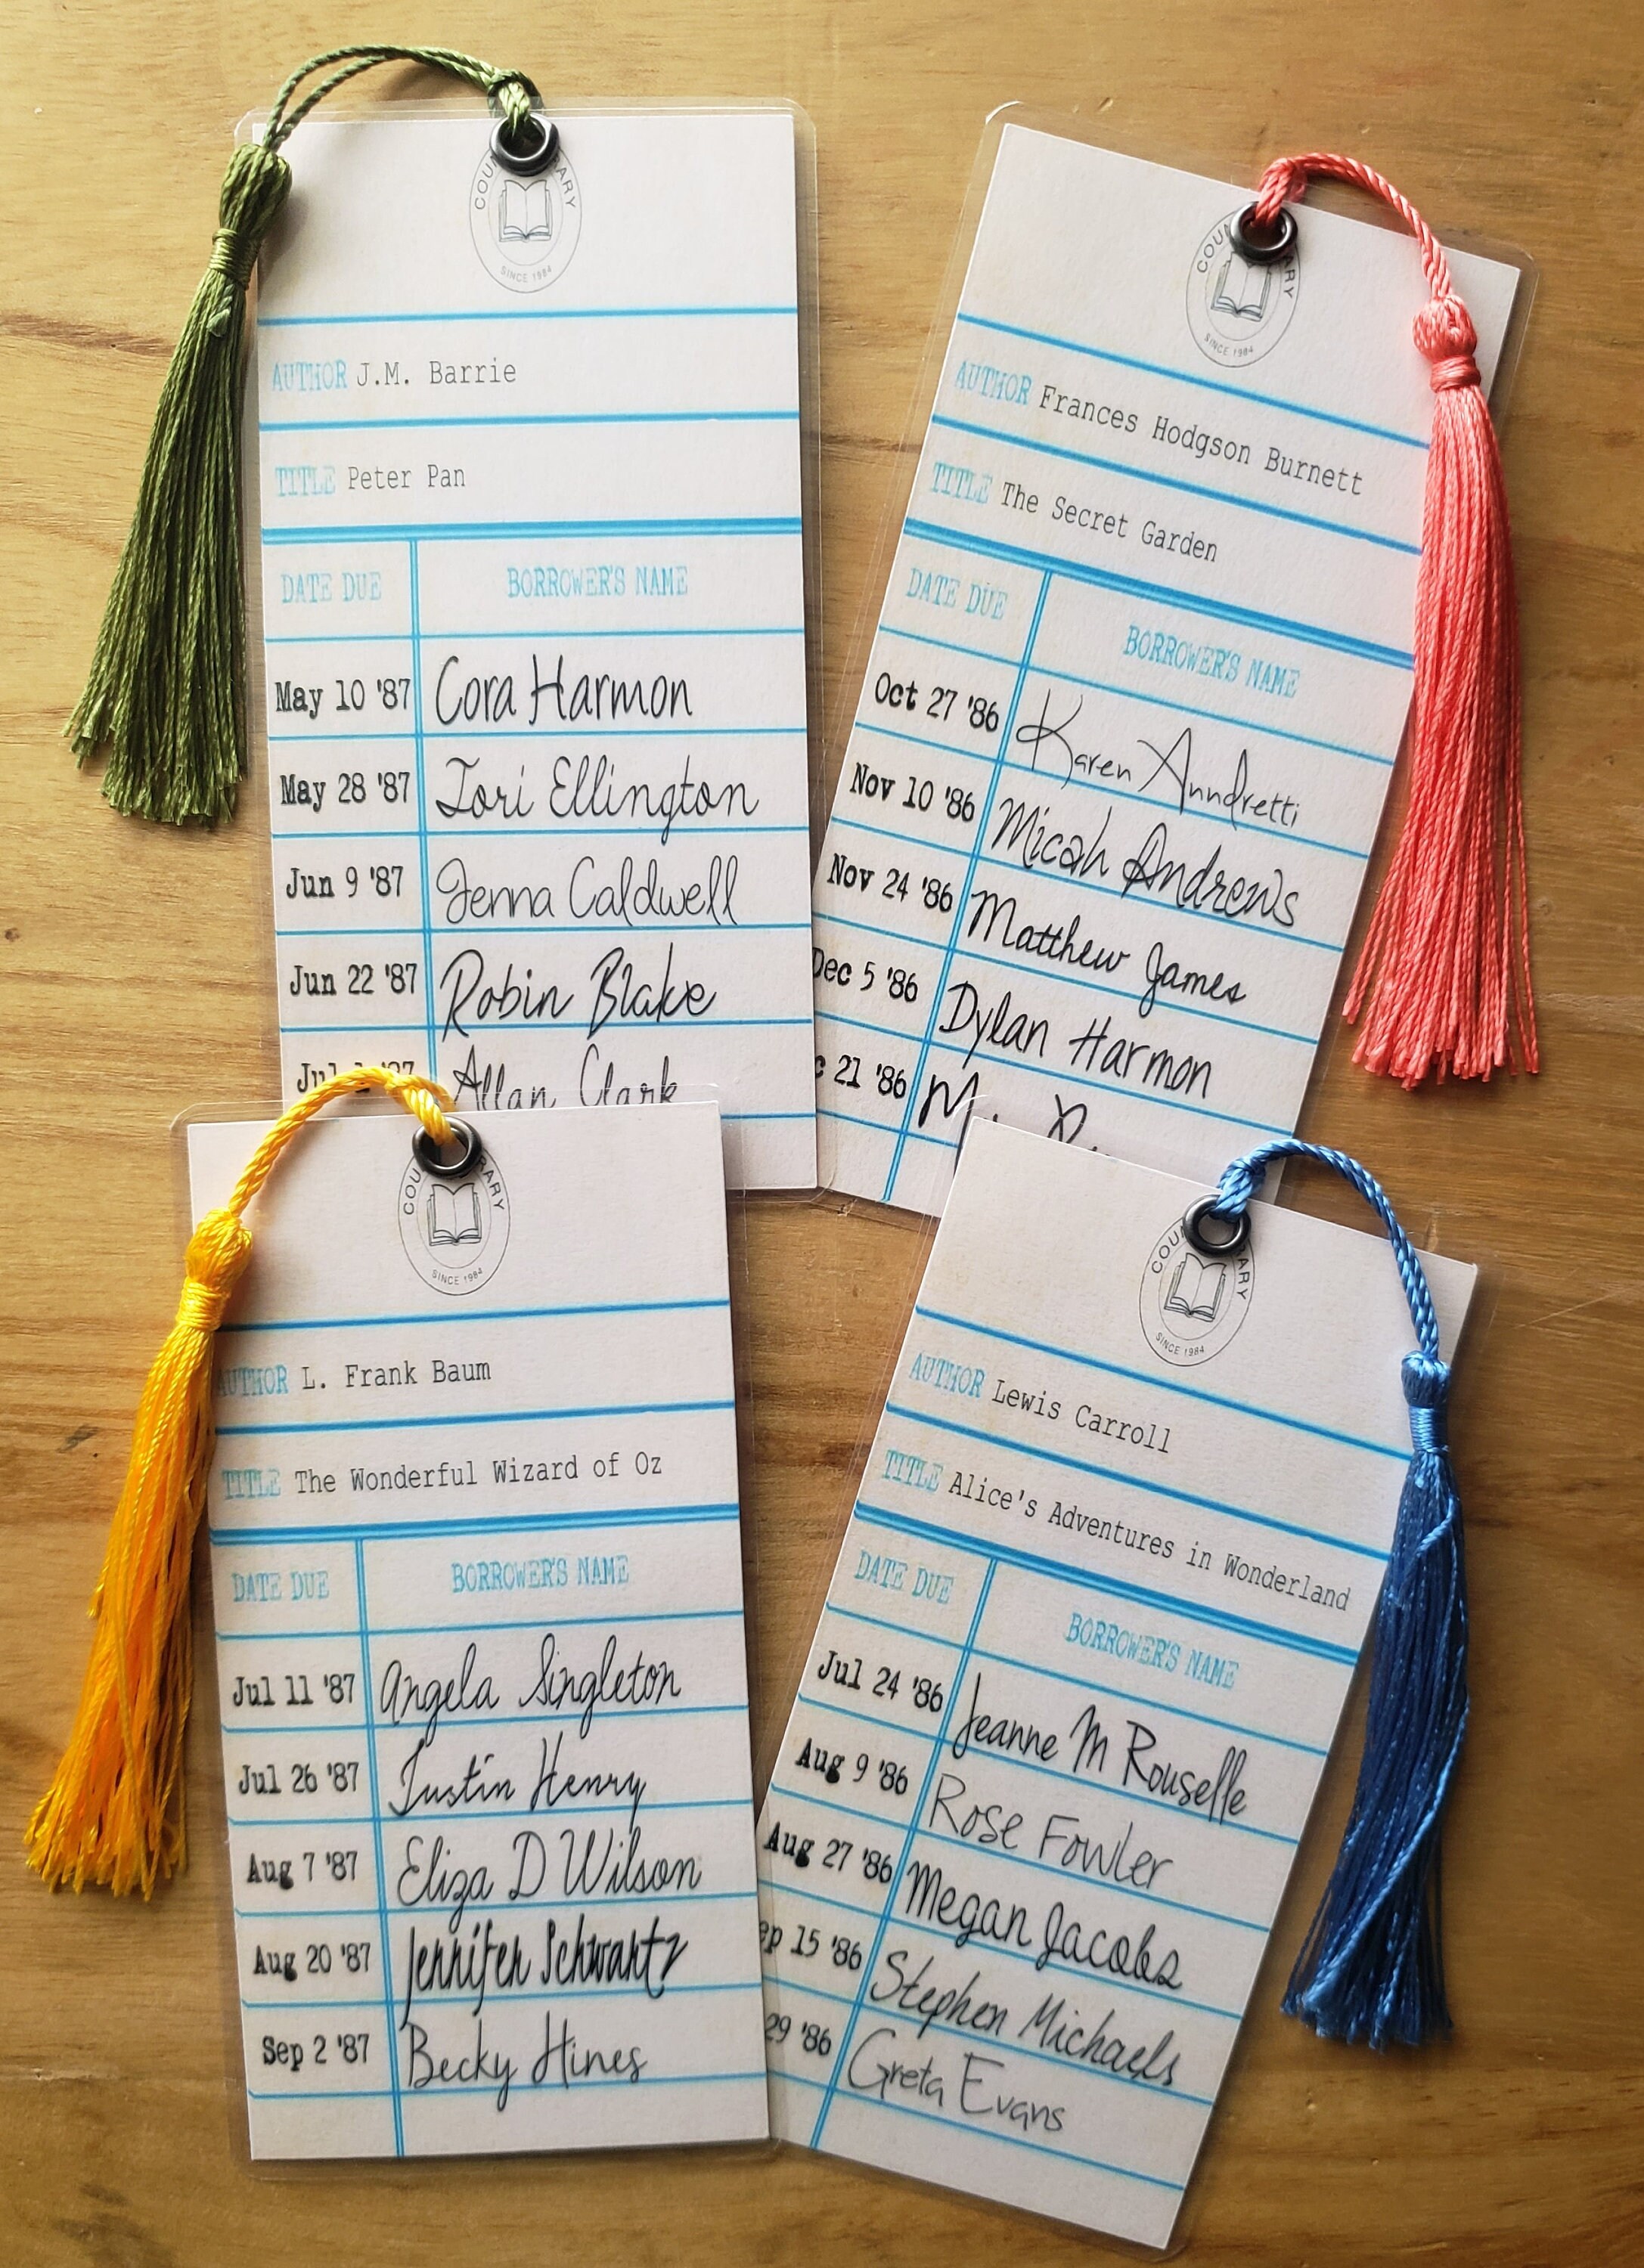 SINCE 1984
AUTHOR J.M. Barrie
TITLE Peter Pan
DATE DUE BORROWER'S NAME
May 10 '87 Cora Harmon
May 28 '87 Tori Ellington
Jun 9 '87 Jenna Caldwell
Jun 22 '87 Robin Blake
Jul '87 Allan Clark
SINCE 1984
AUTHOR Frances Hodgson Burnett
TITLE The Secret Garden
DATE DUE BORROWER'S NAME
Oct 27 '86 Karen Anndretti
Nov 10 '86 Micah Andrews
Nov 24 '86 Matthew James
Dec 5 '86 Dylan Harmon
21 '86
SINCE 1984
AUTHOR L. Frank Baum
TITLE The Wonderful Wizard of Oz
DATE DUE BORROWER'S NAME
Jul 11 '87 Angela Singleton
Jul 26 '87 Justin Henry
Aug 7 '87 Eliza D Wilson
Aug 20 '87 Jennifer Schwartz
Sep 2 '87 Becky Hines
SINCE 1984
AUTHOR Lewis Carroll
TITLE Alice's Adventures in Wonderland
DATE DUE BORROWER'S NAME
Jul 24 '86 Jeanne M Rouselle
Aug 9 '86 Rose Fowler
Aug 27 '86 Megan Jacobs
ep 15 '86 Stephen Michaels
29 '86 Greta Evans